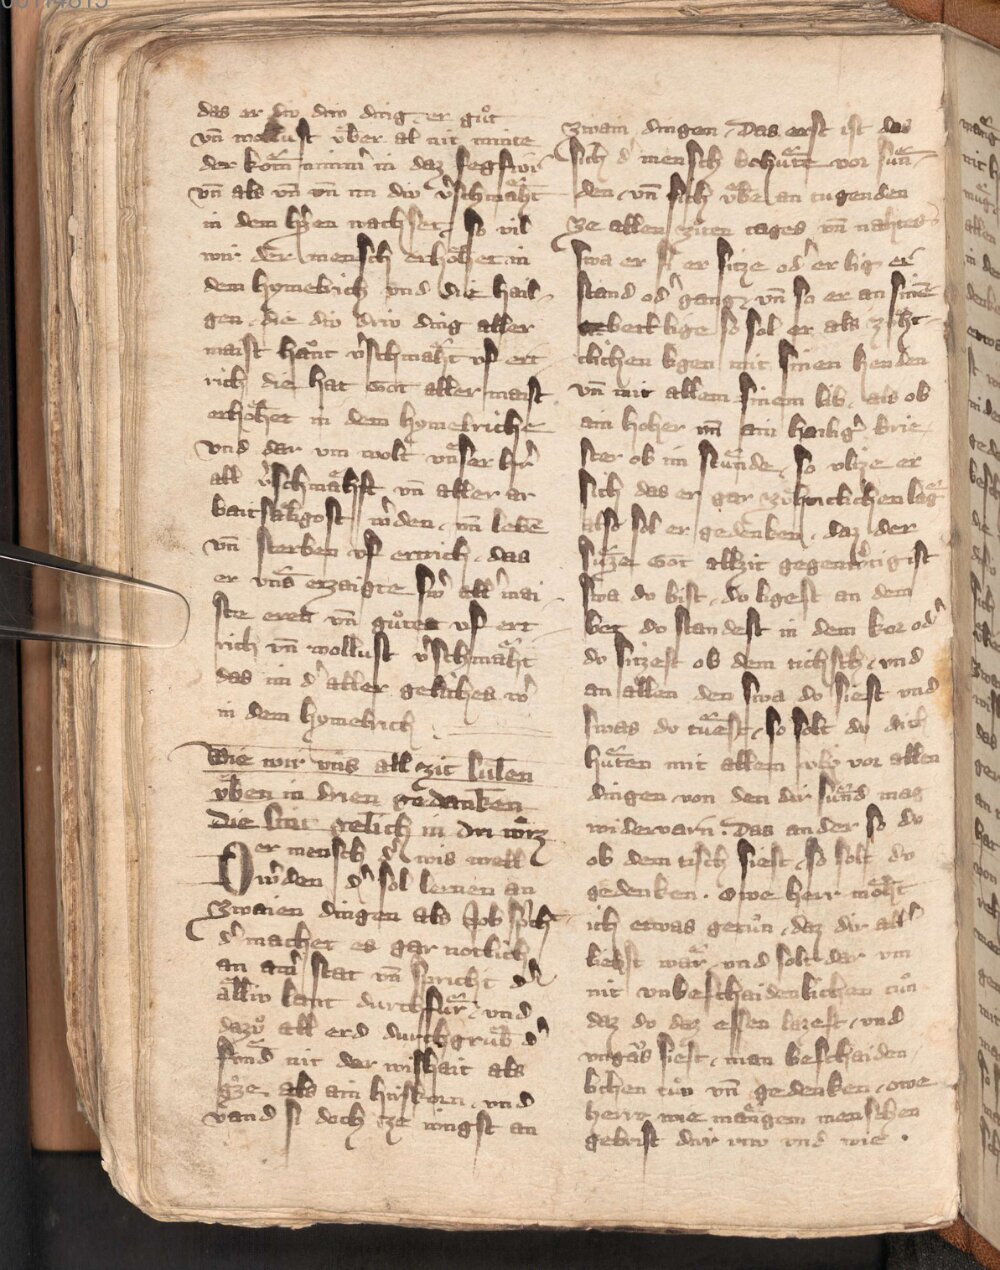 das er div driv ding er guͦt
vn̄ wollust v̈ber al nit minte
der kom̄ nimm̾ in daz fegfiu̍r
vn̄ als vn̄ vn̄ im div v̾schmaͤht
in dem h̾zen wachset, so vil
wir der mensch erhoͤhet in
dem hymelrich vnd die hail
gen, die div driv ding aller
maist hant v̾schmaͤht vf ert
rich die hat got aller maist
erhoͤhet in dem hymelriche
vnd dar vm wolt vnser h̾r
all v̾schmaͤhst vn̄ aller ar
baitsaͤlgost w̾den, vn̄ lebē
vn̄ sterben vf ertrich, das
er vns erzaigte, Sw̾ all̾ mai
ste erett vn̄ guͤtes vf ert
rich vn̄ wollust v̾schmaͤht
das im d̾ aller geliches w̾
in dem hymelrich
Wie wir vns all zit sullen
v̈ben in drien gedanken
die sint gelich in dri wirz
Der mensch d̾ wis well
w̾den d̾ sol lernen an
zwaien dingen als Job sp̾cht
d̾ machet es gar notlich
an ain̾ stat vn̄ spricht d̾
alliv lant durchfuͤr, vnd
dazuͦ all erd durchgruͤb d̾
fund nit der wishait als
groͤze als ain hirskorn, vnd
vand si doch ze iungst an
zwain dingen, Das erst ist das
sich d̾ mensch behuͤte vor sun̄
den, vn̄ sich v̈be an tugenden
ze allen ziten tages vn̄ nahtes
swa er si er sitze od̾ er lig er
stand od̾ gang, vn̄ so er an sinē
bett lige so sol er als zuͤht
clichen ligen mit sinen henden
vn̄ mit allem sinem lib, als ob
ain hoher vn̄ ain hailig̾ brie
ster ob im stuͤnde, so vlize er
sich das er gar zuͤhteclichen lag̾
alst sol er gedenken, daz der
suͤze Got allzit gegenw̾tig ist
swa du bist, du ligest an dem
bet du standest in dem kor od̾
du sitzest ob dem tichsch, vnd
an allen den swa du siest vnd
swas du tuͤest, so solt du dich
huͤten mit allem vliz vor allen
dingen von den dir suͤnd mag
widervarn. Das ander so du
ob dem tisch siest, so solt du
gedenken. Owe herr moͤht
ich etwas getuͦn, daz dir all̾
liebst waͤr, vnd solt dar vm
nit vnbeschaidenlichen tuͦn
daz du daz essen lazest, vnd
vngaͤs siest, man beschaiden
lichen tuͦ vn̄ gedenken, owe
herre wie mangem menschen
gebrist dur vns vnd wie.